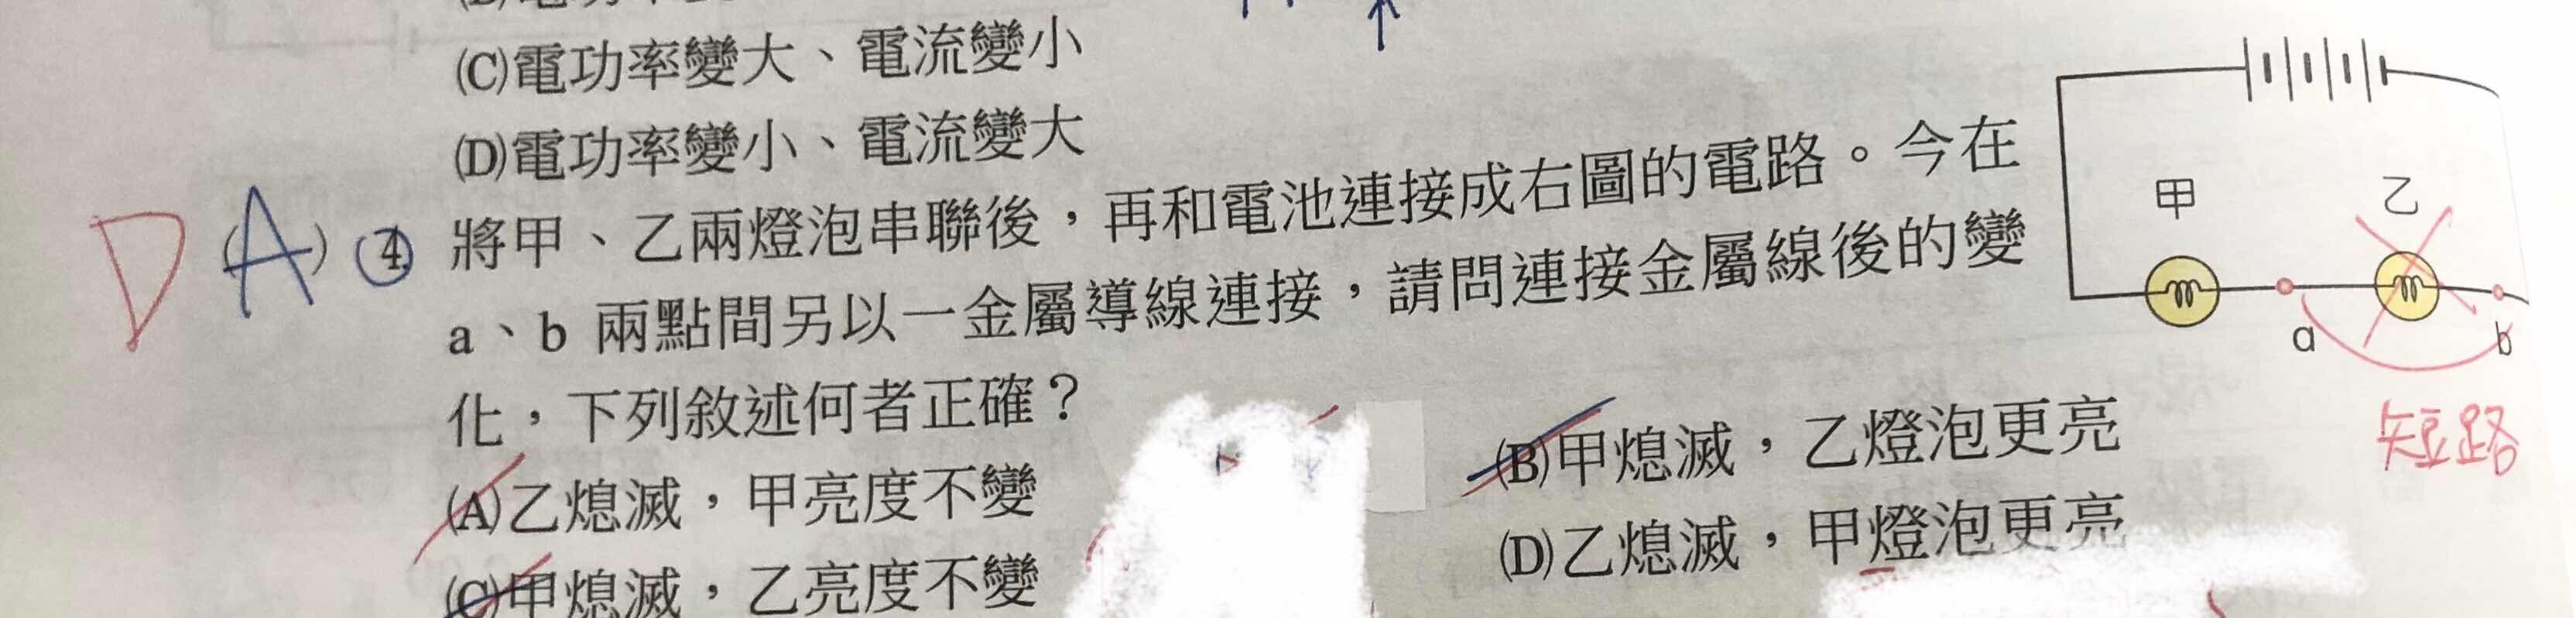 (C)電功率變大、電流變小
(D)電功率變小、電流變大
D (A) 4. 將甲、乙兩燈泡串聯後，再和電池連接成右圖的電路。今在
a、b 兩點間另以一金屬導線連接，請問連接金屬線後的變
化，下列敘述何者正確？
(A)乙熄滅，甲亮度不變
(B)甲熄滅，乙燈泡更亮
(C)甲熄滅，乙亮度不變
(D)乙熄滅，甲燈泡更亮
甲
乙
a
b
短路